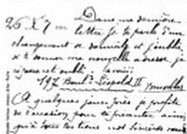 Dans ma dernière
lettre je te parle d'un
changement de domicile et j'oublie
de donner ma nouvelle adresse, je
197 Boulᵈ Léopold II Bruxelles
A quelques jours près je profite
de l'occasion pour te présenter ainsi
qu'à tous les tiens nos